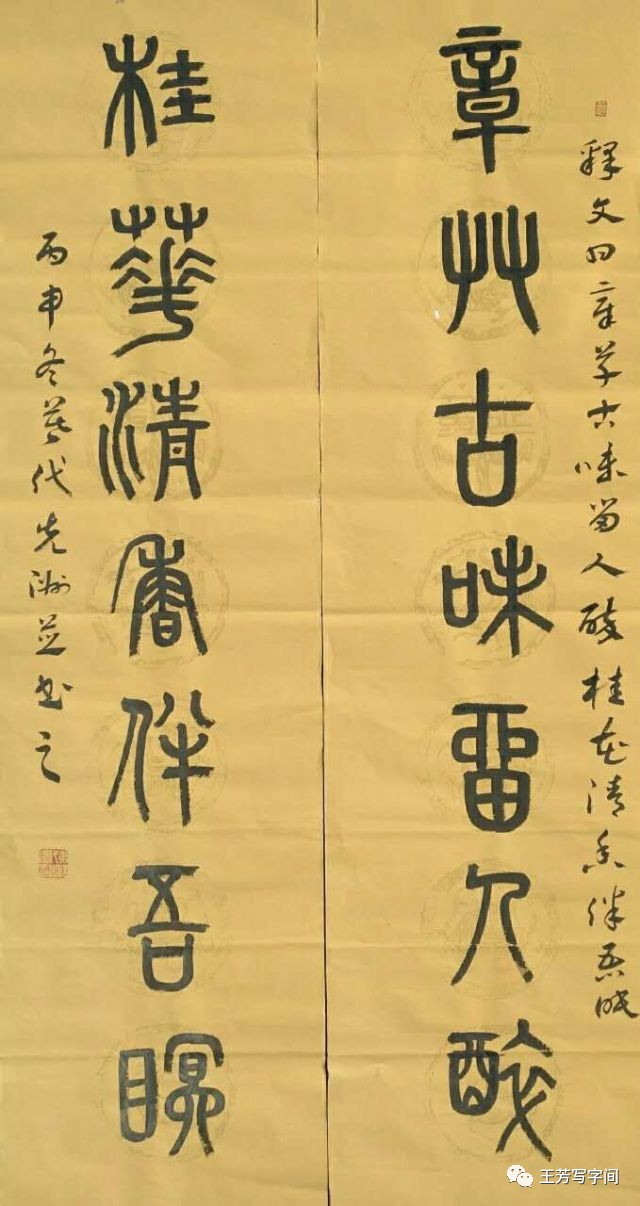 释文曰章草古味留人醉桂花清香伴吾眠
章艸古味留人醉
桂華清香伴吾瞑
丙申冬暮代先洲並书之
王芳写字间